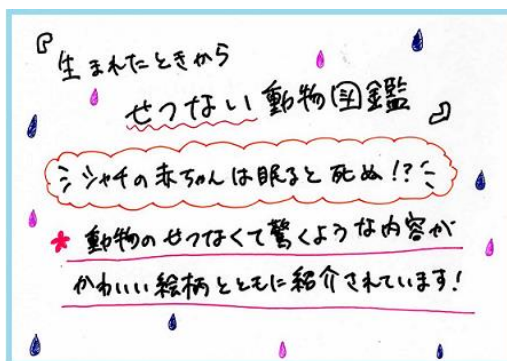 『生まれたときから
せつない動物図鑑』
シャチの赤ちゃんは眠ると死ぬ!?
* 動物のせつなくて驚くような内容が
かわいい絵柄とともに紹介されています!